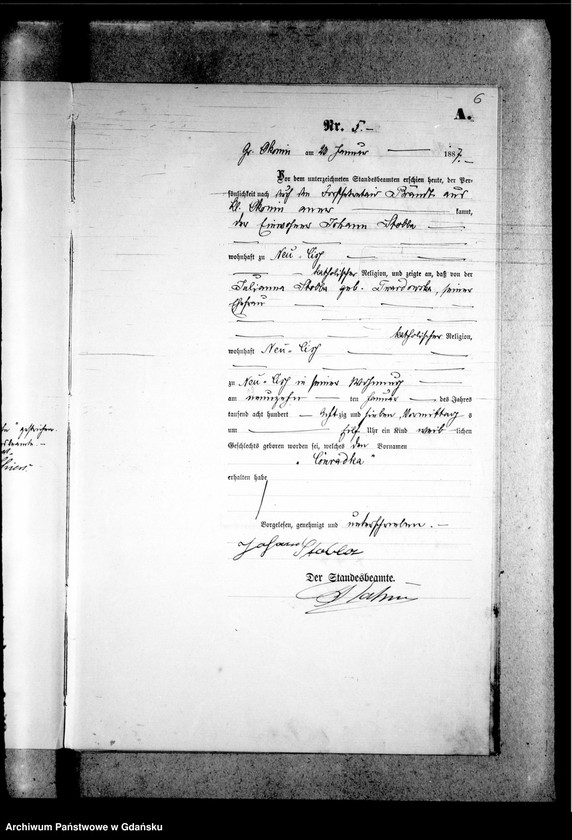 6
A.
Nr. 5.
Gr. Okonin am 20 Januar 1887.
Vor dem unterzeichneten Standesbeamten erschien heute, der Per-
sönlichkeit nach durch den Brandt aus
Kl. Okonin anerkannt,
der Einwohner Johann Stobba
wohnhaft zu Neu-
katholischer Religion, und zeigte an, daß von der
Julianna Stobba geb. Twardowska, seiner
Ehefrau
katholischer Religion,
wohnhaft Neu-
zu Neu- in seiner Wohnung
am neunzehn ten Januar des Jahres
tausend acht hundert achtzig und sieben Vormittags
um Uhr ein Kind weiblichen
Geschlechts geboren worden sei, welches den Vornamen
"Conradka"
erhalten habe
Vorgelesen, genehmigt und unterschrieben.
Johann Stobba
Der Standesbeamte.
gestrichen.
Archiwum Państwowe w Gdańsku